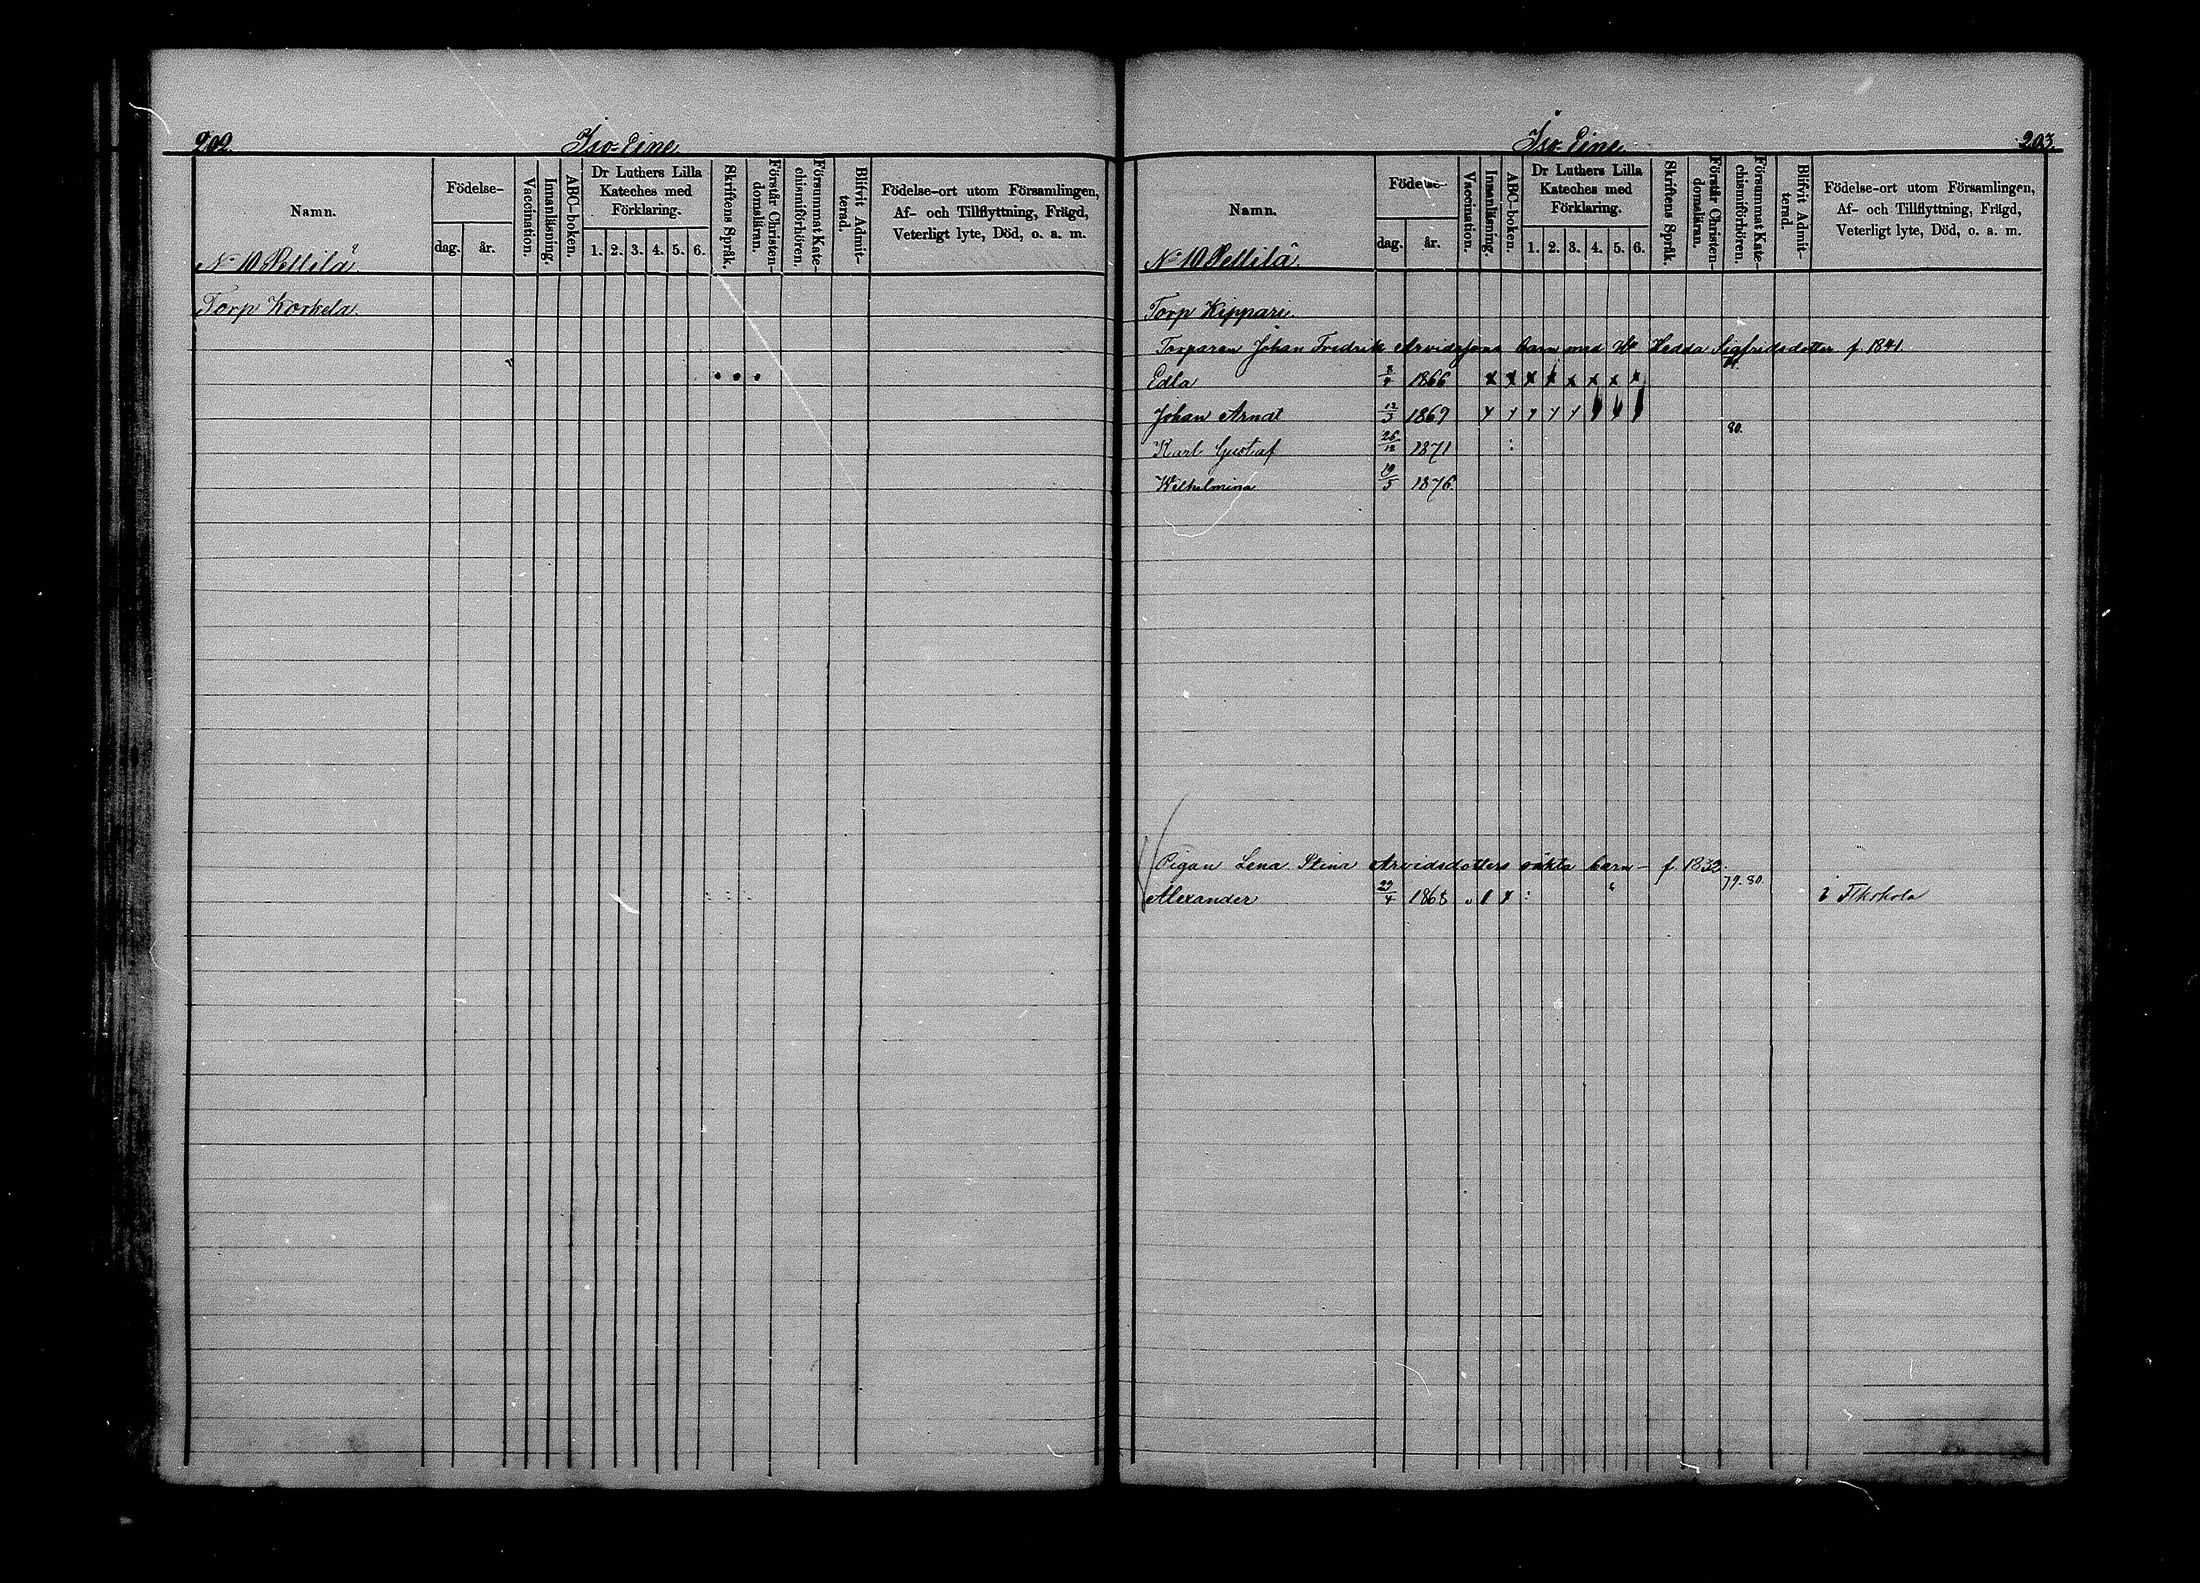 202.
Iso-Eine.
Namn.
Födelse-
dag. år.
Vaccination.
Innanläsning.
ABC-boken.
Dr Luthers Lilla
Kateches med
Förklaring.
1. 2. 3. 4. 5. 6.
Skriftens Språk.
Förstår Christen-
domsläran.
Försummat Kate-
chismiförhören.
Blifvit Admit-
terad.
Födelse-ort utom Församlingen,
Af- och Tillflyttning, Frägd,
Veterligt lyte, Död, o. a. m.
No 10 Pellilä
Torp Korkela
Iso-Eine.
203.
Namn.
Födelse-
dag. år.
Vaccination.
Innanläsning.
ABC-boken.
Dr Luthers Lilla
Kateches med
Förklaring.
1. 2. 3. 4. 5. 6.
Skriftens Språk.
Förstår Christen-
domsläran.
Försummat Kate-
chismiförhören.
Blifvit Admit-
terad.
Födelse-ort utom Församlingen,
Af- och Tillflyttning, Frägd,
Veterligt lyte, Död, o. a. m.
No 10 Pellilä
Torp Kippari.
Torparen Johan Fredrik Arvidssons barn med Hedda Sigfridsdotter f. 1841.
Edla 1866 x x x x x x x x
Johan Arndt 12/3 1869
Karl Gustaf 26/12 1871 : 80.
Wilhelmina 19/5 1876
Pigan Lena Stina Arvidsdotters oäkta barn - f. 1832.
Alexander 29/4 1868 79. 80. i